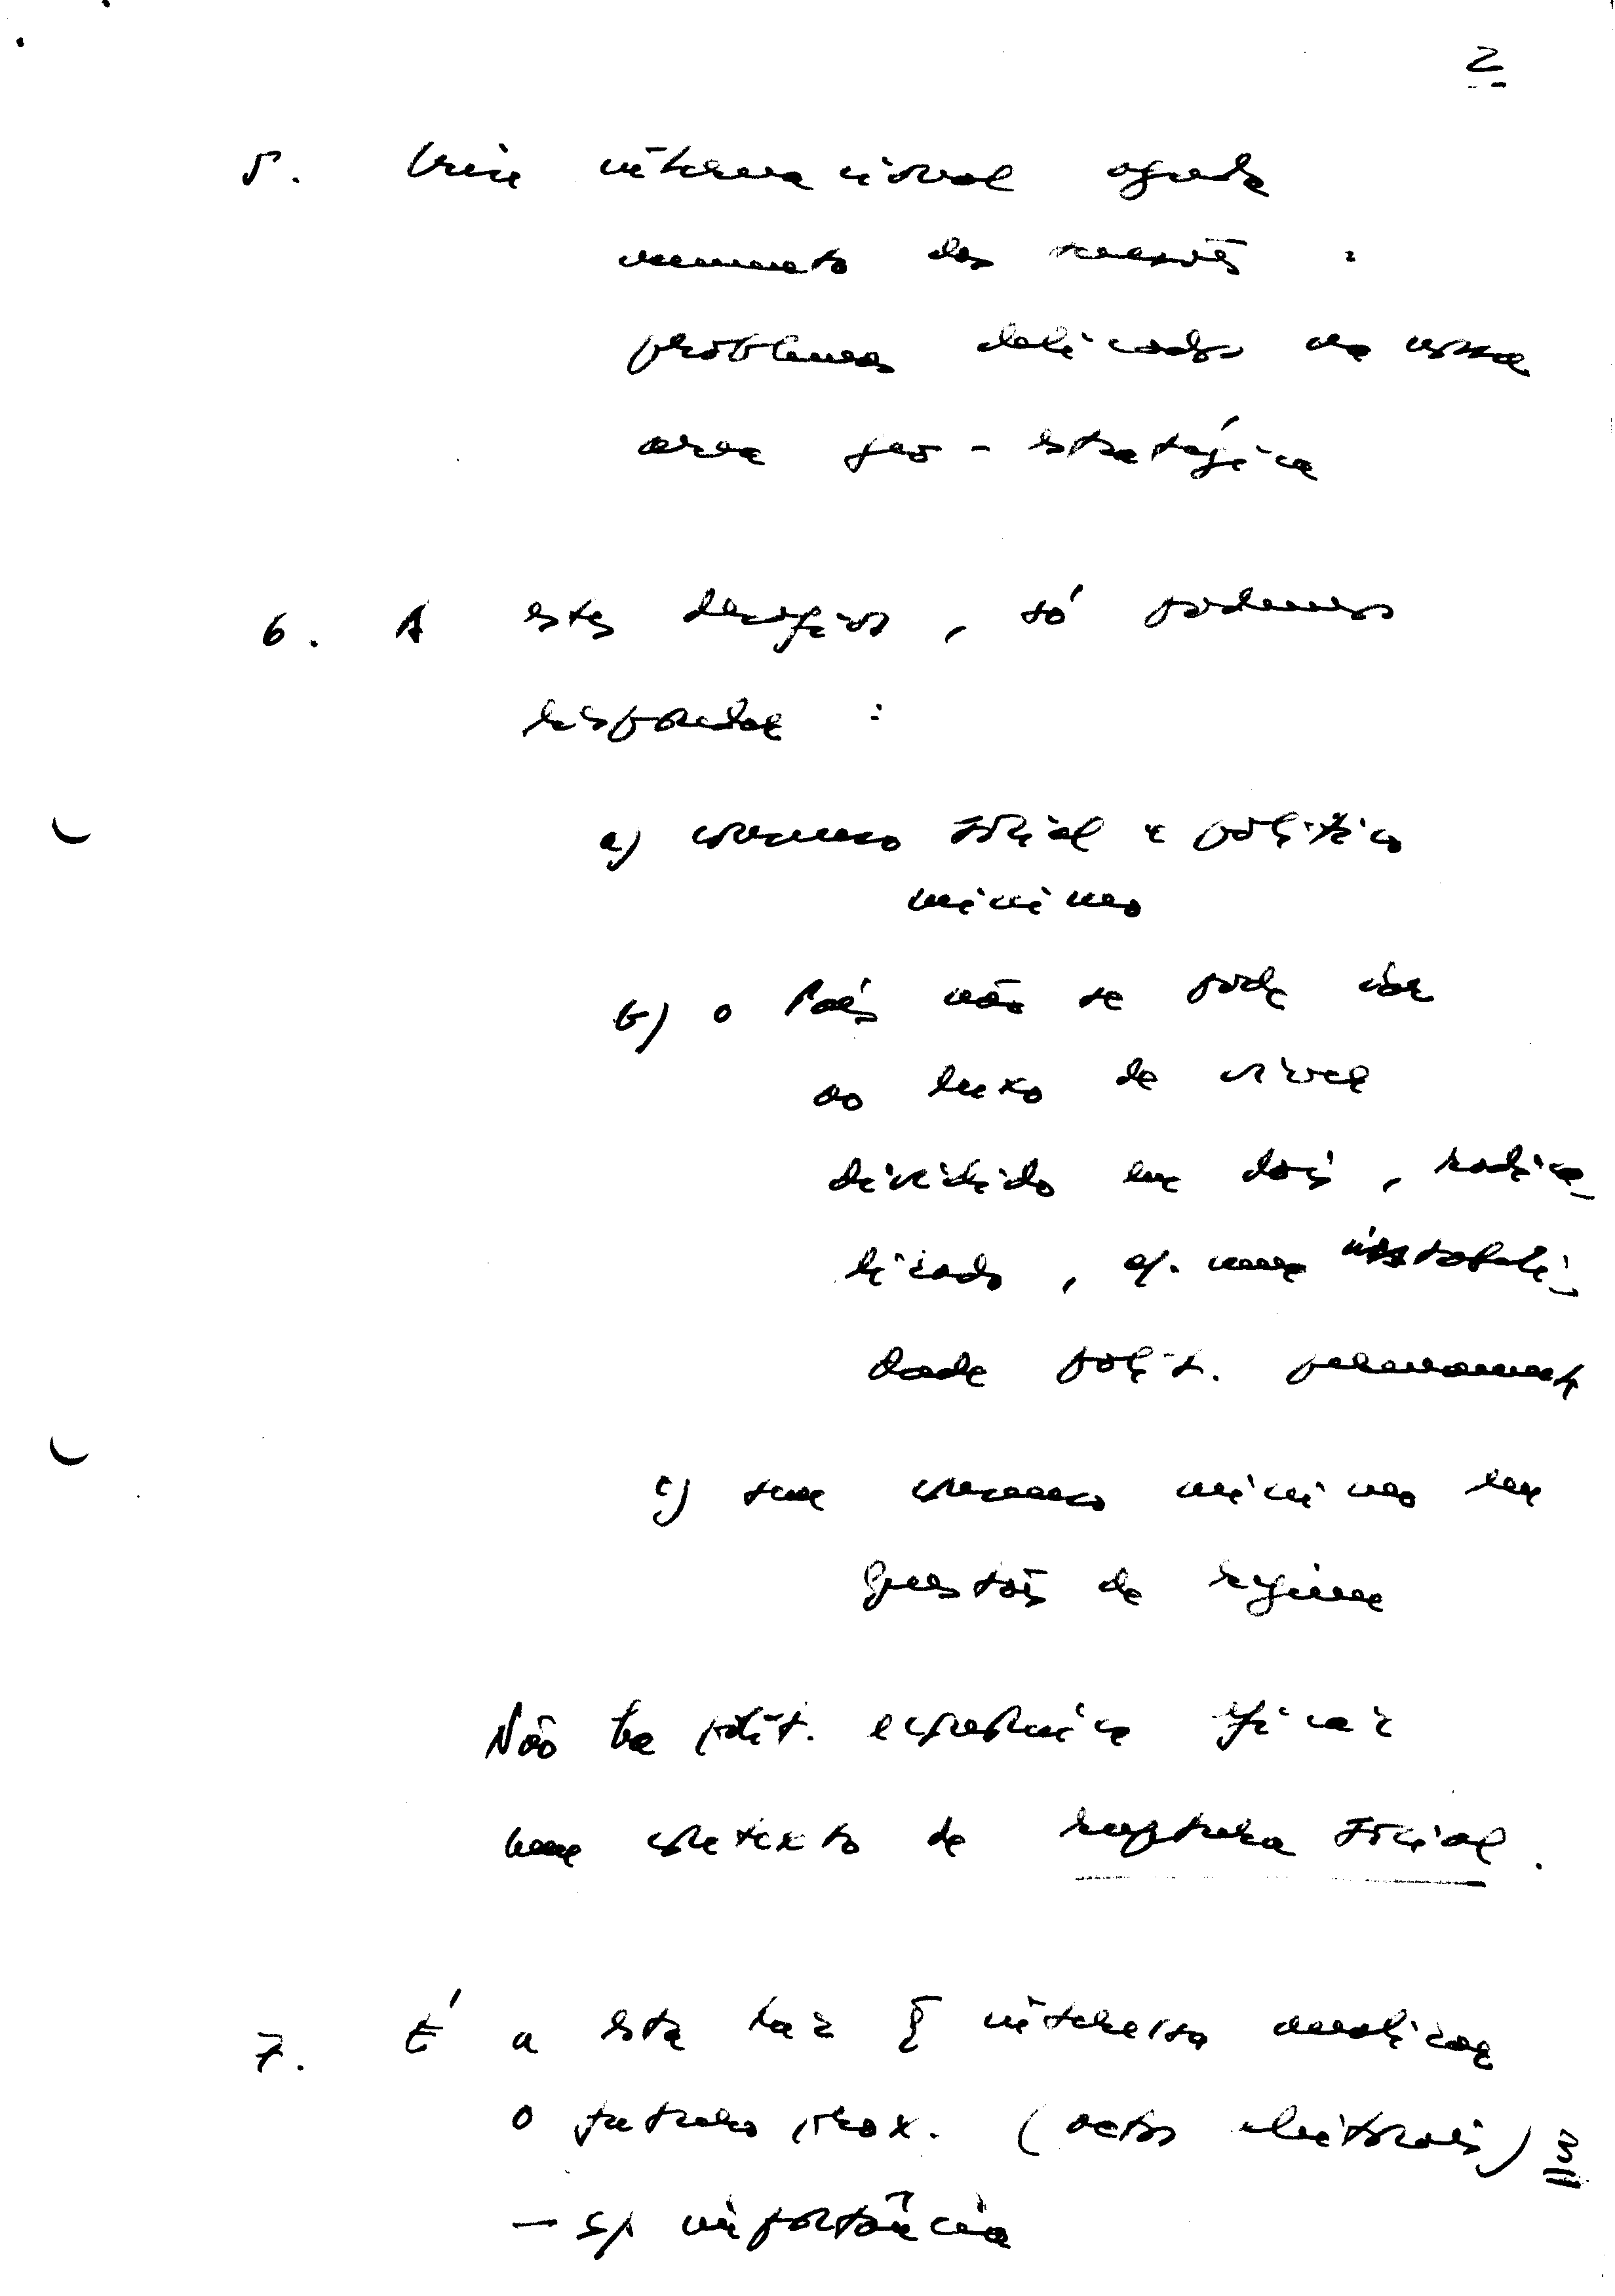 2
5. Crise internacional agrava
mento das tensões :
problemas delicados na nossa
area geo-estratégica
6. A estes desafios, só podemos
responder :
a) consenso social e político
minimo
b) o País não se pode dar
ao luxo de viver
dividido em dois, radica_
lizado, c/. uma instabili_
dade polít. permanente
c) sem consenso minimo em
questões de regime
Não ha polít. economica eficaz
num contexto de ruptura social.
7. É a esta luz q interessa analizar
o futuro próx. (actos eleitorais) 3
— s/ importância